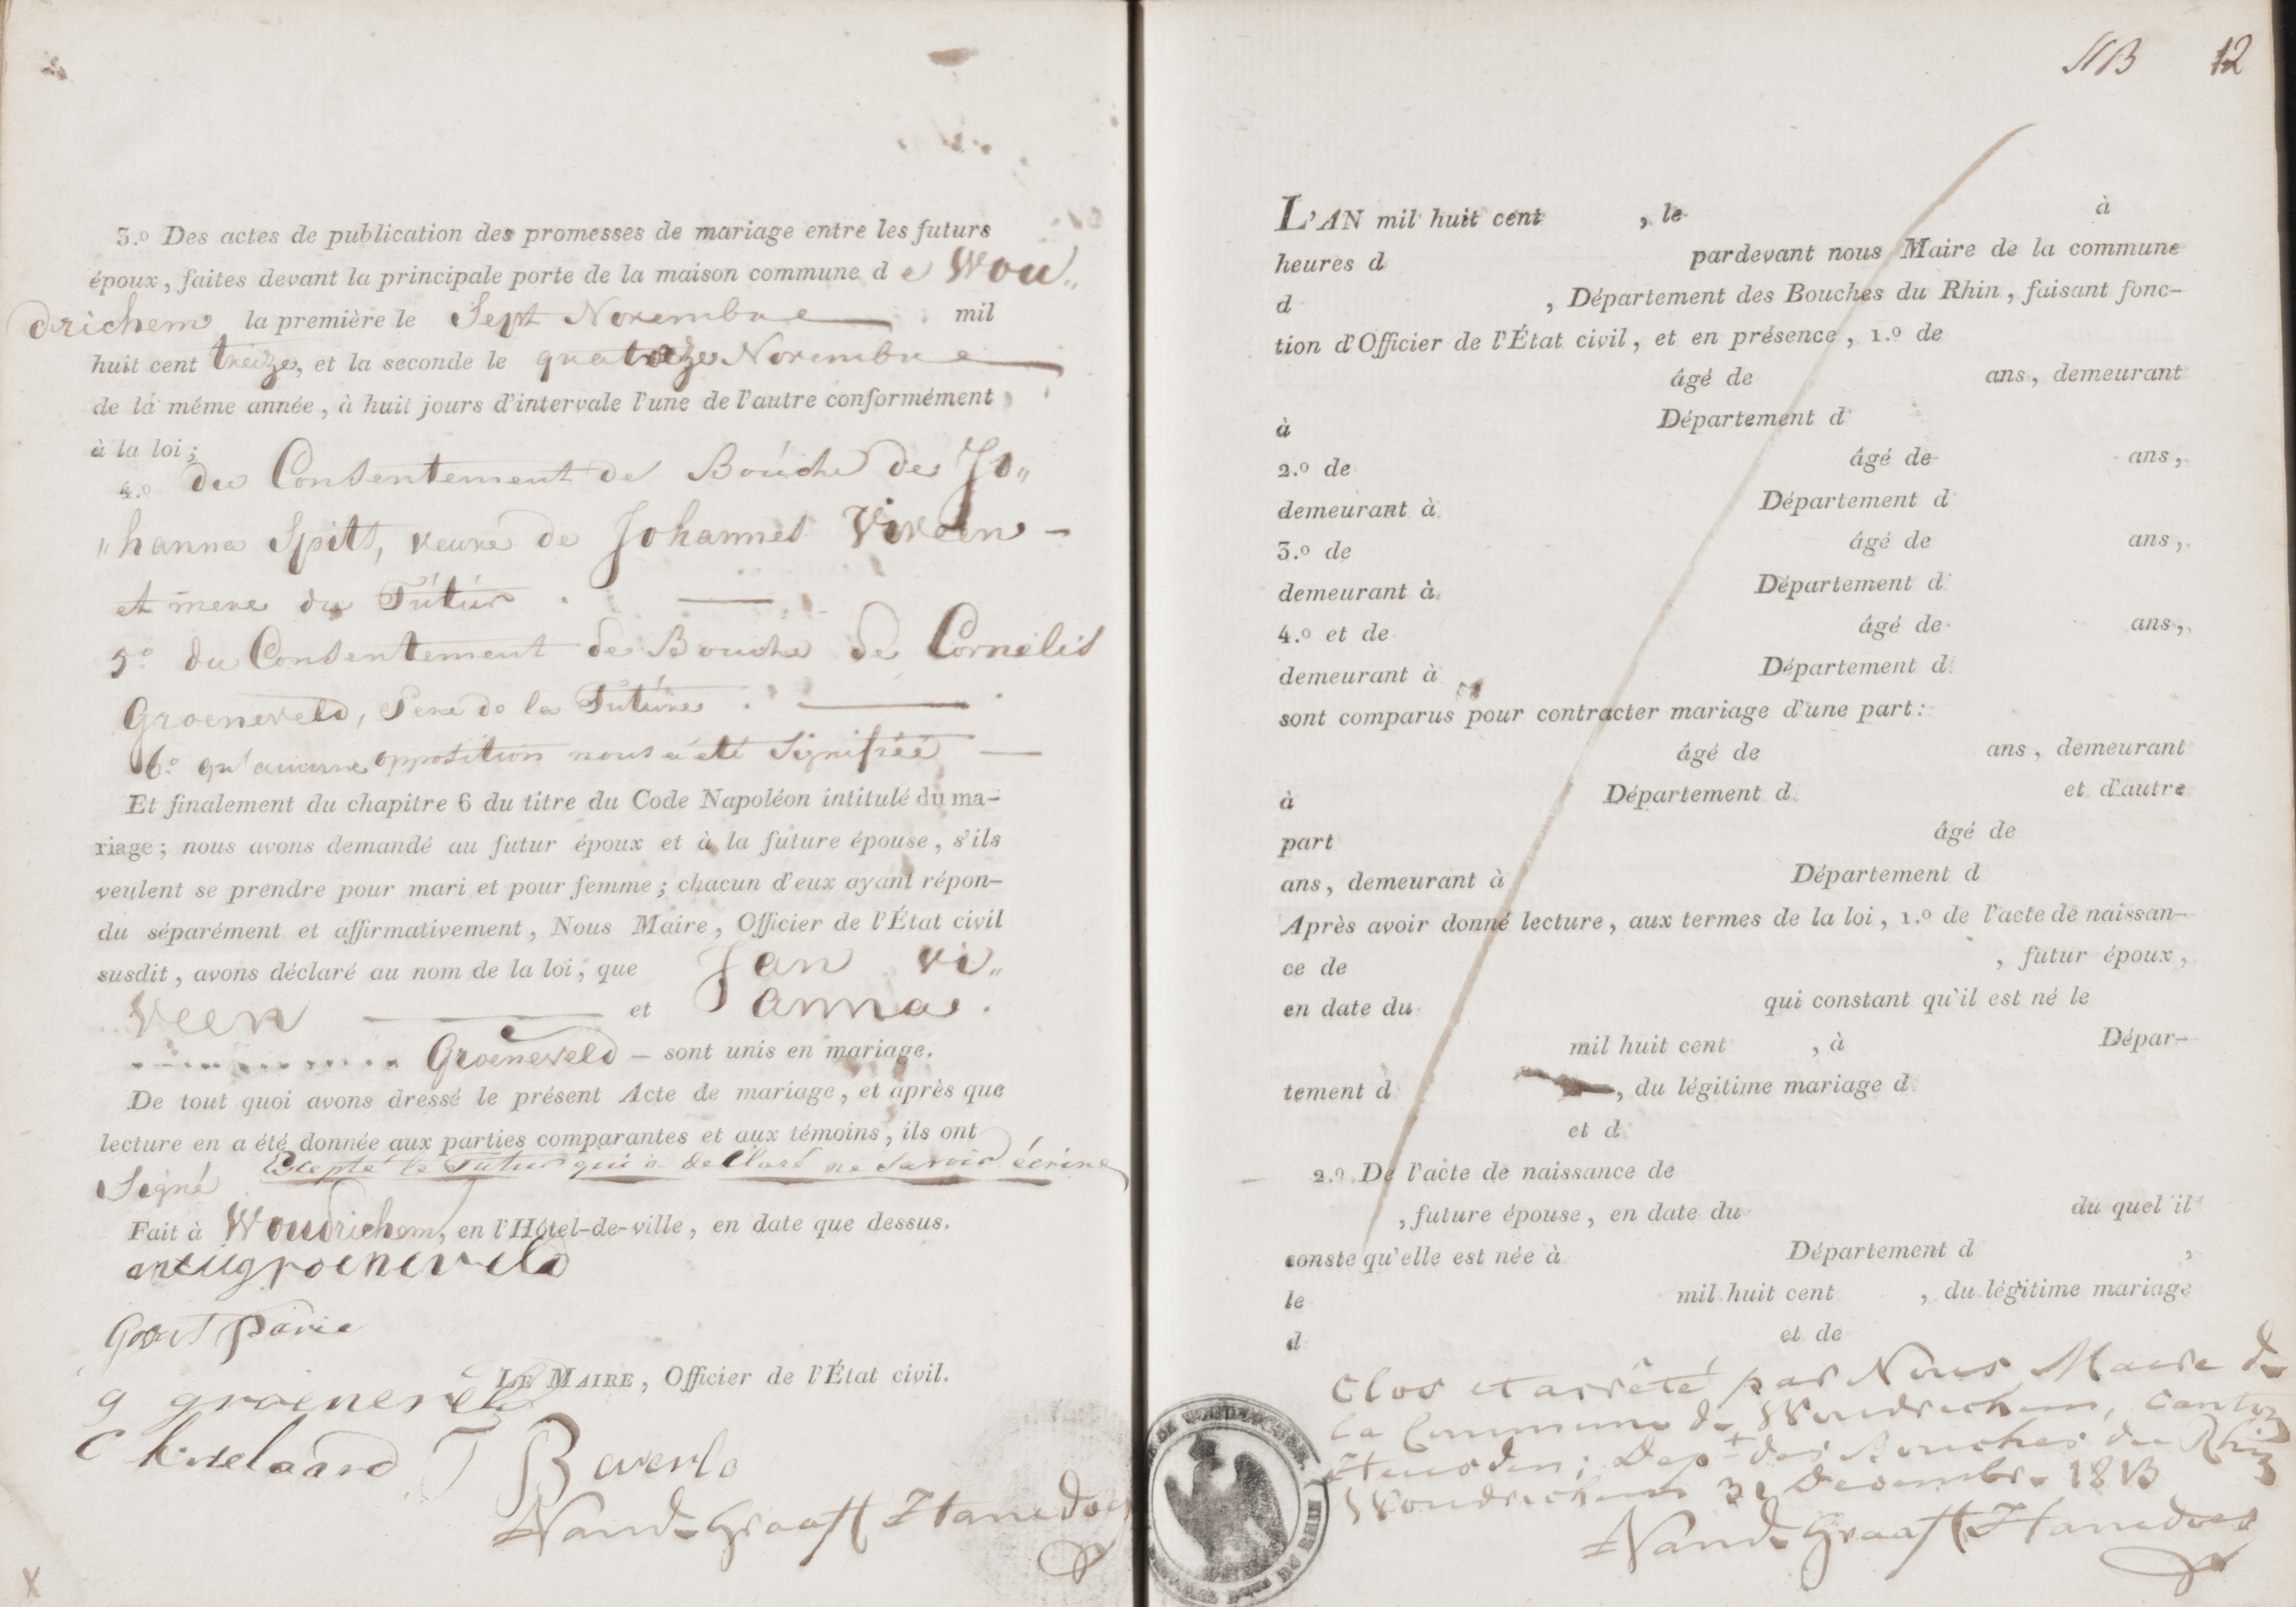 3.º Des actes de publication des promesses de mariage entre les futurs
époux, faites devant la principale porte de la maison commune d e Wou„
drichem la première le Sept Novembre mil
huit cent treize, et la seconde le quatorze Novembre
de la même année, à huit jours d'intervale l'une de l'autre conformément
à la loi;
4.º du Consentement de Bouche de Jo„
„hanna Spits, veuve de Johannes Viveen —
et mere du Fútúr . —
5º du Consentement de Bouche de Cornelis
Groeneveld, Pere de la Fúture . —
6.º qu'aucune opposition nous a été Signifiéé —
Et finalement du chapitre 6 du titre du Code Napoléon intitulé du ma-
riage; nous avons demandé au futur époux et à la future épouse, s'ils
veulent se prendre pour mari et pour femme; chacun d'eux ayant répon-
du séparément et affirmativement, Nous Maire, Officier de l'État civil
susdit, avons déclaré au nom de la loi, que Jan Vi„
Veen — et Anna .
Groeneveld — sont unis en mariage.
De tout quoi avons dressé le présent Acte de mariage, et après que
lecture en a été donnée aux parties comparantes et aux témoins, ils ont
Signé Excepté le Futur qui a déclaré ne Savoir écrire
Fait à Woudrichem, en l'Hôtel-de-ville, en date que dessus.
groeneveld
LE MAIRE, Officier de l'État civil.
g groeneveld
C
T Beverlo
Van de Graaff Hanedoes
NB 12
L'AN mil huit cent , le à
heures d pardevant nous Maire de la commune
d , Département des Bouches du Rhin, faisant fonc-
tion d'Officier de l'État civil, et en présence, 1.º de
âgé de ans, demeurant
à Département d
2.º de âgé de ans,
demeurant à Département d
3.º de âgé de ans,
demeurant à Département d
4.º et de âgé de ans,
demeurant à Département d
sont comparus pour contracter mariage d'une part:
âgé de ans, demeurant
à Département d et d'autre
part âgé de
ans, demeurant à Département d
Après avoir donné lecture, aux termes de la loi, 1.º de l'acte de naissan-
ce de , futur époux,
en date du qui constant qu'il est né le
mil huit cent , à Dépar-
tement d , du légitime mariage d
et d
2.º De l'acte de naissance de
, future épouse, en date du du quel il
conste qu'elle est née à Département d ,
le mil huit cent , du légitime mariage
d et de
Clos et arrêté par Nous Maire de
la Commune de Woudrichem, Canton
Heusden; Dept des Bouches du Rhin
Woudrichem 31 Decembre 1813
Van de Graaff Hanedoes